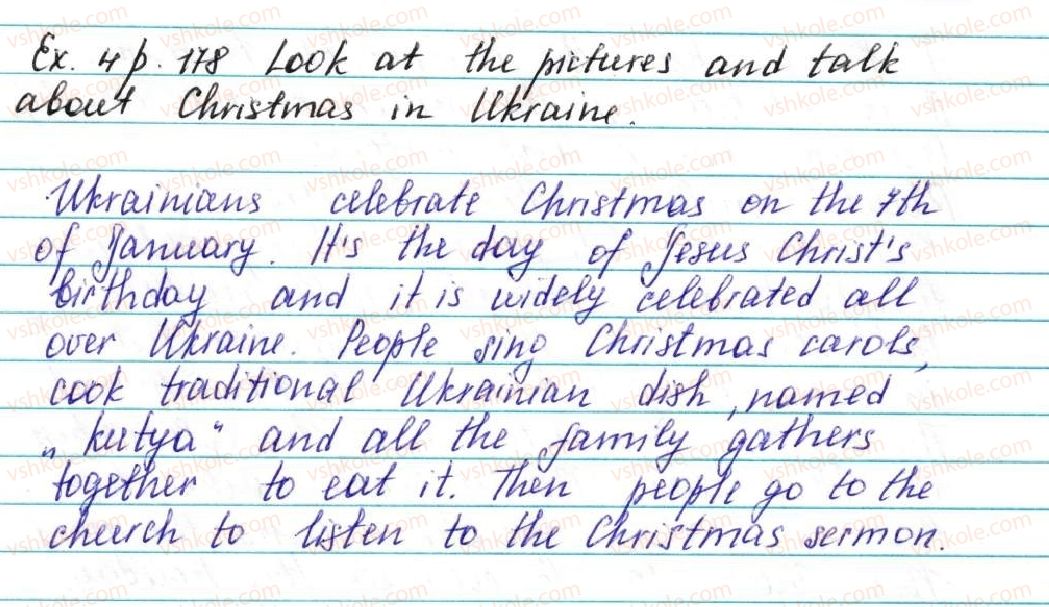 Ex. 4 p. 178 Look at the pictures and talk
about Christmas in Ukraine.
Ukrainians celebrate Christmas on the 7th
of January. It's the day of Jesus Christ's
birthday and it is widely celebrated all
over Ukraine. People sing Christmas carols,
cook traditional Ukrainian dish, named
„kutya“ and all the family gathers
together to eat it. Then people go to the
church to listen to the Christmas sermon.